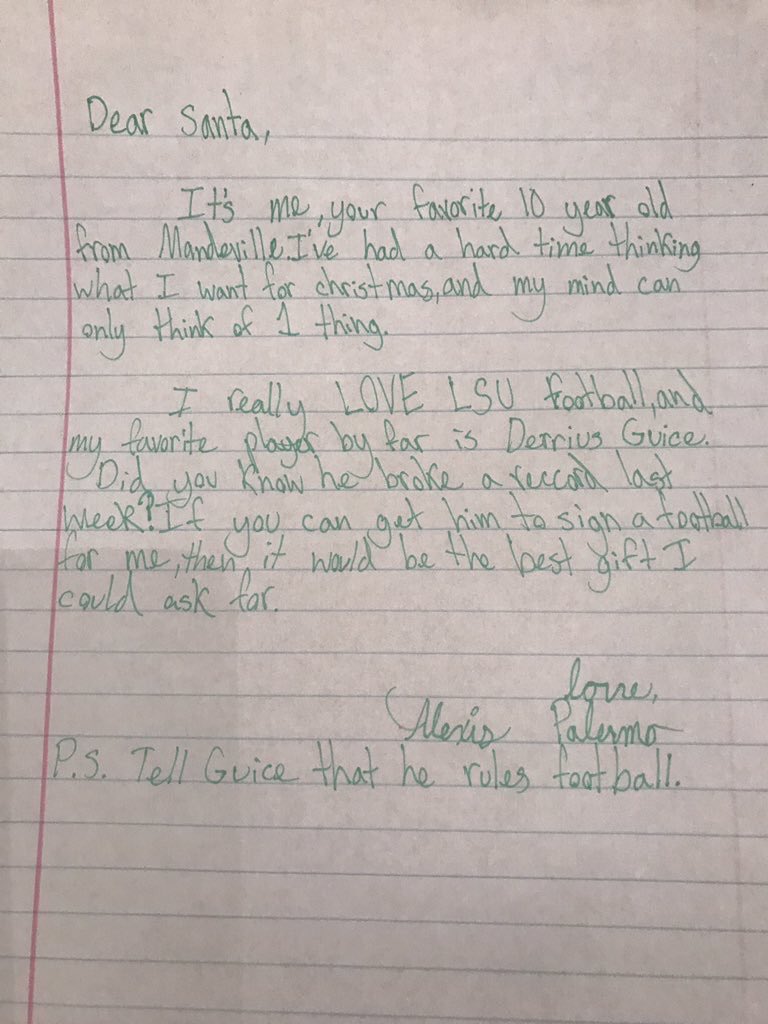 Dear Santa,
It's me, your favorite 10 year old
from Mandeville. I've had a hard time thinking
what I want for christmas, and my mind can
only think of 1 thing.
I really LOVE LSU football, and
my favorite player by far is Derrius Guice.
Did you know he broke a reccord last
week? If you can get him to sign a football
for me, then it would be the best gift I
could ask for.
love,
Alexis Palermo
P.S. Tell Guice that he rules football.